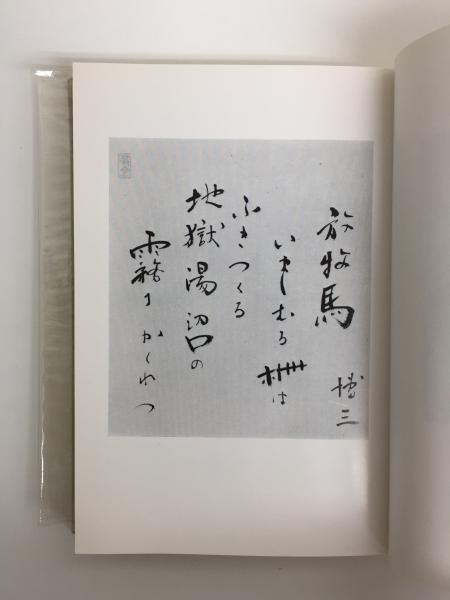 放牧馬
博三
いましむる柵は
ふきつくる
地獄湯沼の
霧にかくれつ